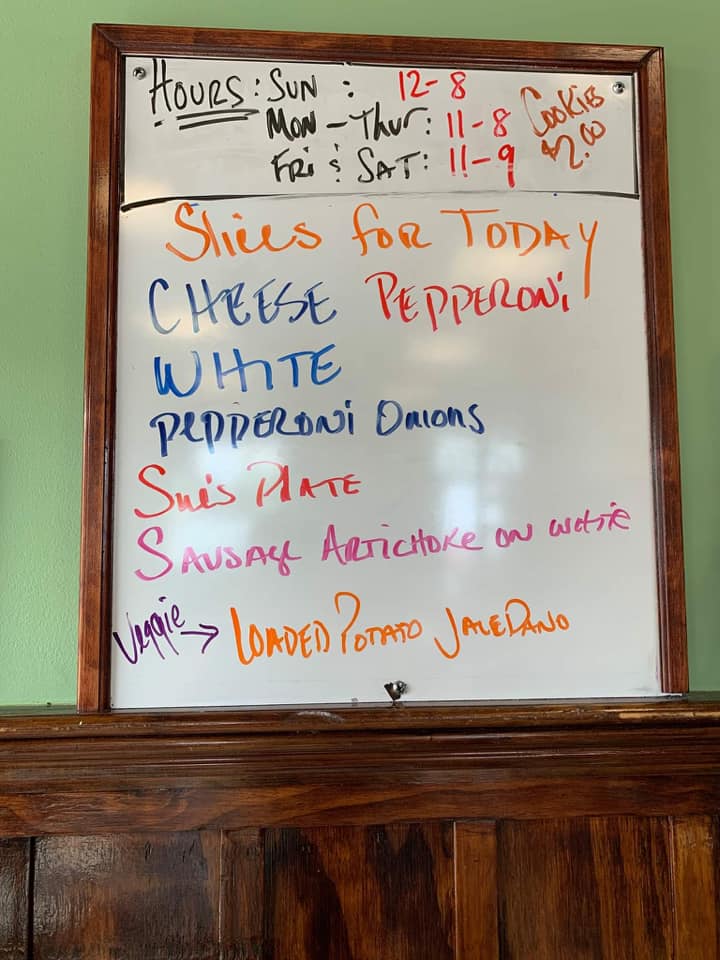 HOURS: SUN : 12-8
MON - Thur: 11-8
FRi & SAT: 11-9
Cookies
$2.00
Slices for TODAY
CHEESE PEPPERONi
WHITE
PEPPERONi Onions
Sue's PLATE
SAUSAGE ARTICHOKE ON WHITE
Veggie → LOADED POTATO JALEPANO